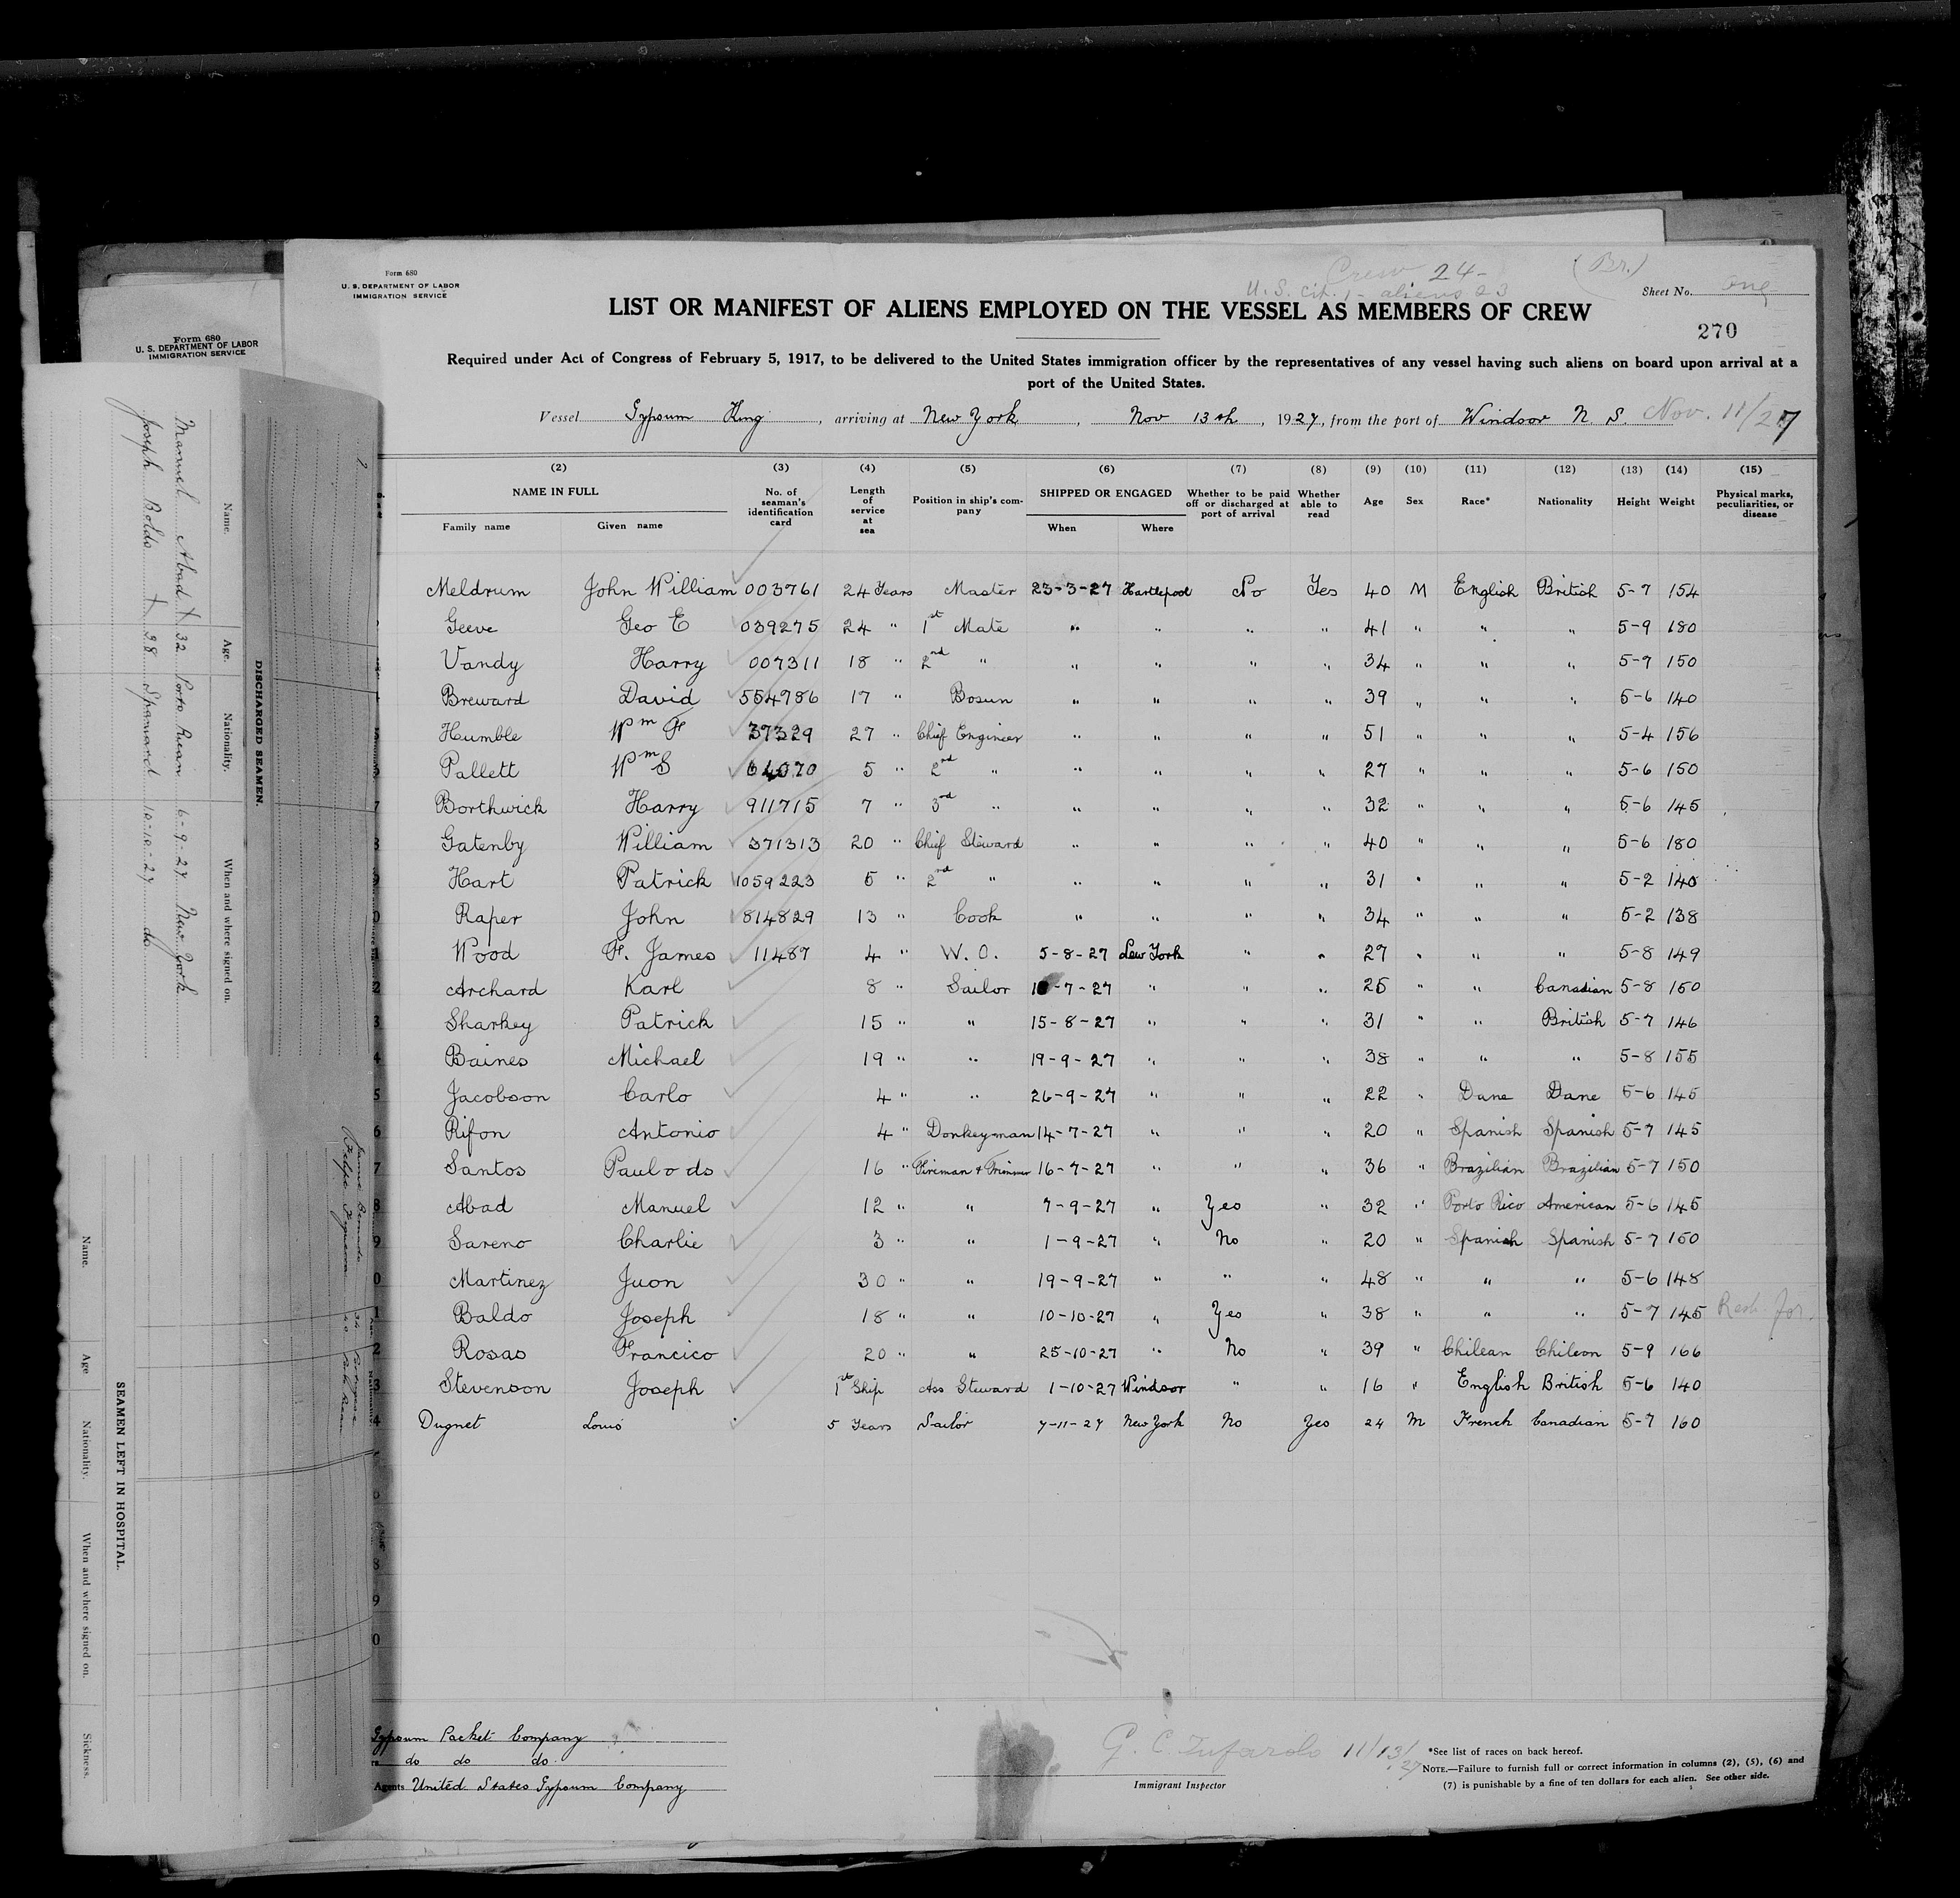 Form 680
U. S. DEPARTMENT OF LABOR
IMMIGRATION SERVICE
Crew 24-
(Br.)
U. S. cit. 1 - aliens 23
Sheet No. One
LIST OR MANIFEST OF ALIENS EMPLOYED ON THE VESSEL AS MEMBERS OF CREW
270
Required under Act of Congress of February 5, 1917, to be delivered to the United States immigration officer by the representatives of any vessel having such aliens on board upon arrival at a
port of the United States.
Vessel Gypsum King, arriving at New York, Nov 13th, 1927, from the port of Windsor N. S. Nov. 11/27
(2) (3) (4) (5) (6) (7) (8) (9) (10) (11) (12) (13) (14) (15)
NAME IN FULL
Family name Given name
No. of seaman's identification card
Length of service at sea
Position in ship's company
SHIPPED OR ENGAGED
When Where
Whether to be paid off or discharged at port of arrival
Whether able to read
Age
Sex
Race*
Nationality
Height
Weight
Physical marks, peculiarities, or disease
Meldrum John William 003761 24 Years Master 23-3-27 Hartlepool No Yes 40 M English British 5-7 154
Geeve Geo E 039275 24 " 1st Mate " " " " 41 " " " 5-9 180
Vandy Harry 007311 18 " 2nd " " " " " 34 " " " 5-7 150
Breward David 554786 17 " Bosun " " " " 39 " " " 5-6 140
Humble Wm F 37329 27 " Chief Engineer " " " " 51 " " " 5-4 156
Pallett Wm S 64070 5 " 2nd " " " " " 27 " " " 5-6 150
Borthwick Harry 911715 7 " 3rd " " " " " 32 " " " 5-6 145
Gatenby William 371313 20 " Chief Steward " " " " 40 " " " 5-6 180
Hart Patrick 1059223 5 " 2nd " " " " " 31 " " " 5-2 140
Raper John 814829 13 " Cook " " " " 34 " " " 5-2 138
Wood F. James 11487 4 " W. O. 5-8-27 New York " " 27 " " " 5-8 149
Archard Karl 8 " Sailor -7-27 " " " 25 " " Canadian 5-8 150
Sharkey Patrick 15 " " 15-8-27 " " " 31 " " British 5-7 146
Baines Michael 19 " " 19-9-27 " " " 38 " " " 5-8 155
Jacobson Carlo 4 " " 26-9-27 " " " 22 " Dane Dane 5-6 145
Rifon Antonio 4 " Donkeyman 14-7-27 " " " 20 " Spanish Spanish 5-7 145
Santos Paulo do 16 " Fireman & Trimmer 16-7-27 " " " 36 " Brazilian Brazilian 5-7 150
Abad Manuel 12 " " 7-9-27 " Yes " 32 " Porto Rico American 5-6 145
Sareno Charlie 3 " " 1-9-27 " No " 20 " Spanish Spanish 5-7 150
Martinez Juon 30 " " 19-9-27 " " " 48 " " " 5-6 148
Baldo Joseph 18 " " 10-10-27 " Yes " 38 " " " 5-7 145
Rosas Francico 20 " " 25-10-27 " No " 39 " Chilean Chilean 5-9 166
Stevenson Joseph 1st Ship Ass Steward 1-10-27 Windsor " " 16 " English British 5-6 140
Dugnet Louis 5 Years Sailor 7-11-27 New York No Yes 24 M French Canadian 5-7 160
Gypsum Packet Company
do do do.
Agents United States Gypsum Company
11/13/27
Immigrant Inspector
*See list of races on back hereof.
NOTE.—Failure to furnish full or correct information in columns (2), (5), (6) and
(7) is punishable by a fine of ten dollars for each alien. See other side.
Form 680
U. S. DEPARTMENT OF LABOR
IMMIGRATION SERVICE
DISCHARGED SEAMEN.
Name. Age. Nationality. When and where signed on.
Manuel Abad 32 Porto Rican 6-9-27 New York
Joseph Boldo 38 Spaniard 10-10-27 do
SEAMEN LEFT IN HOSPITAL.
Name. Age Nationality. When and where signed on. Sickness.